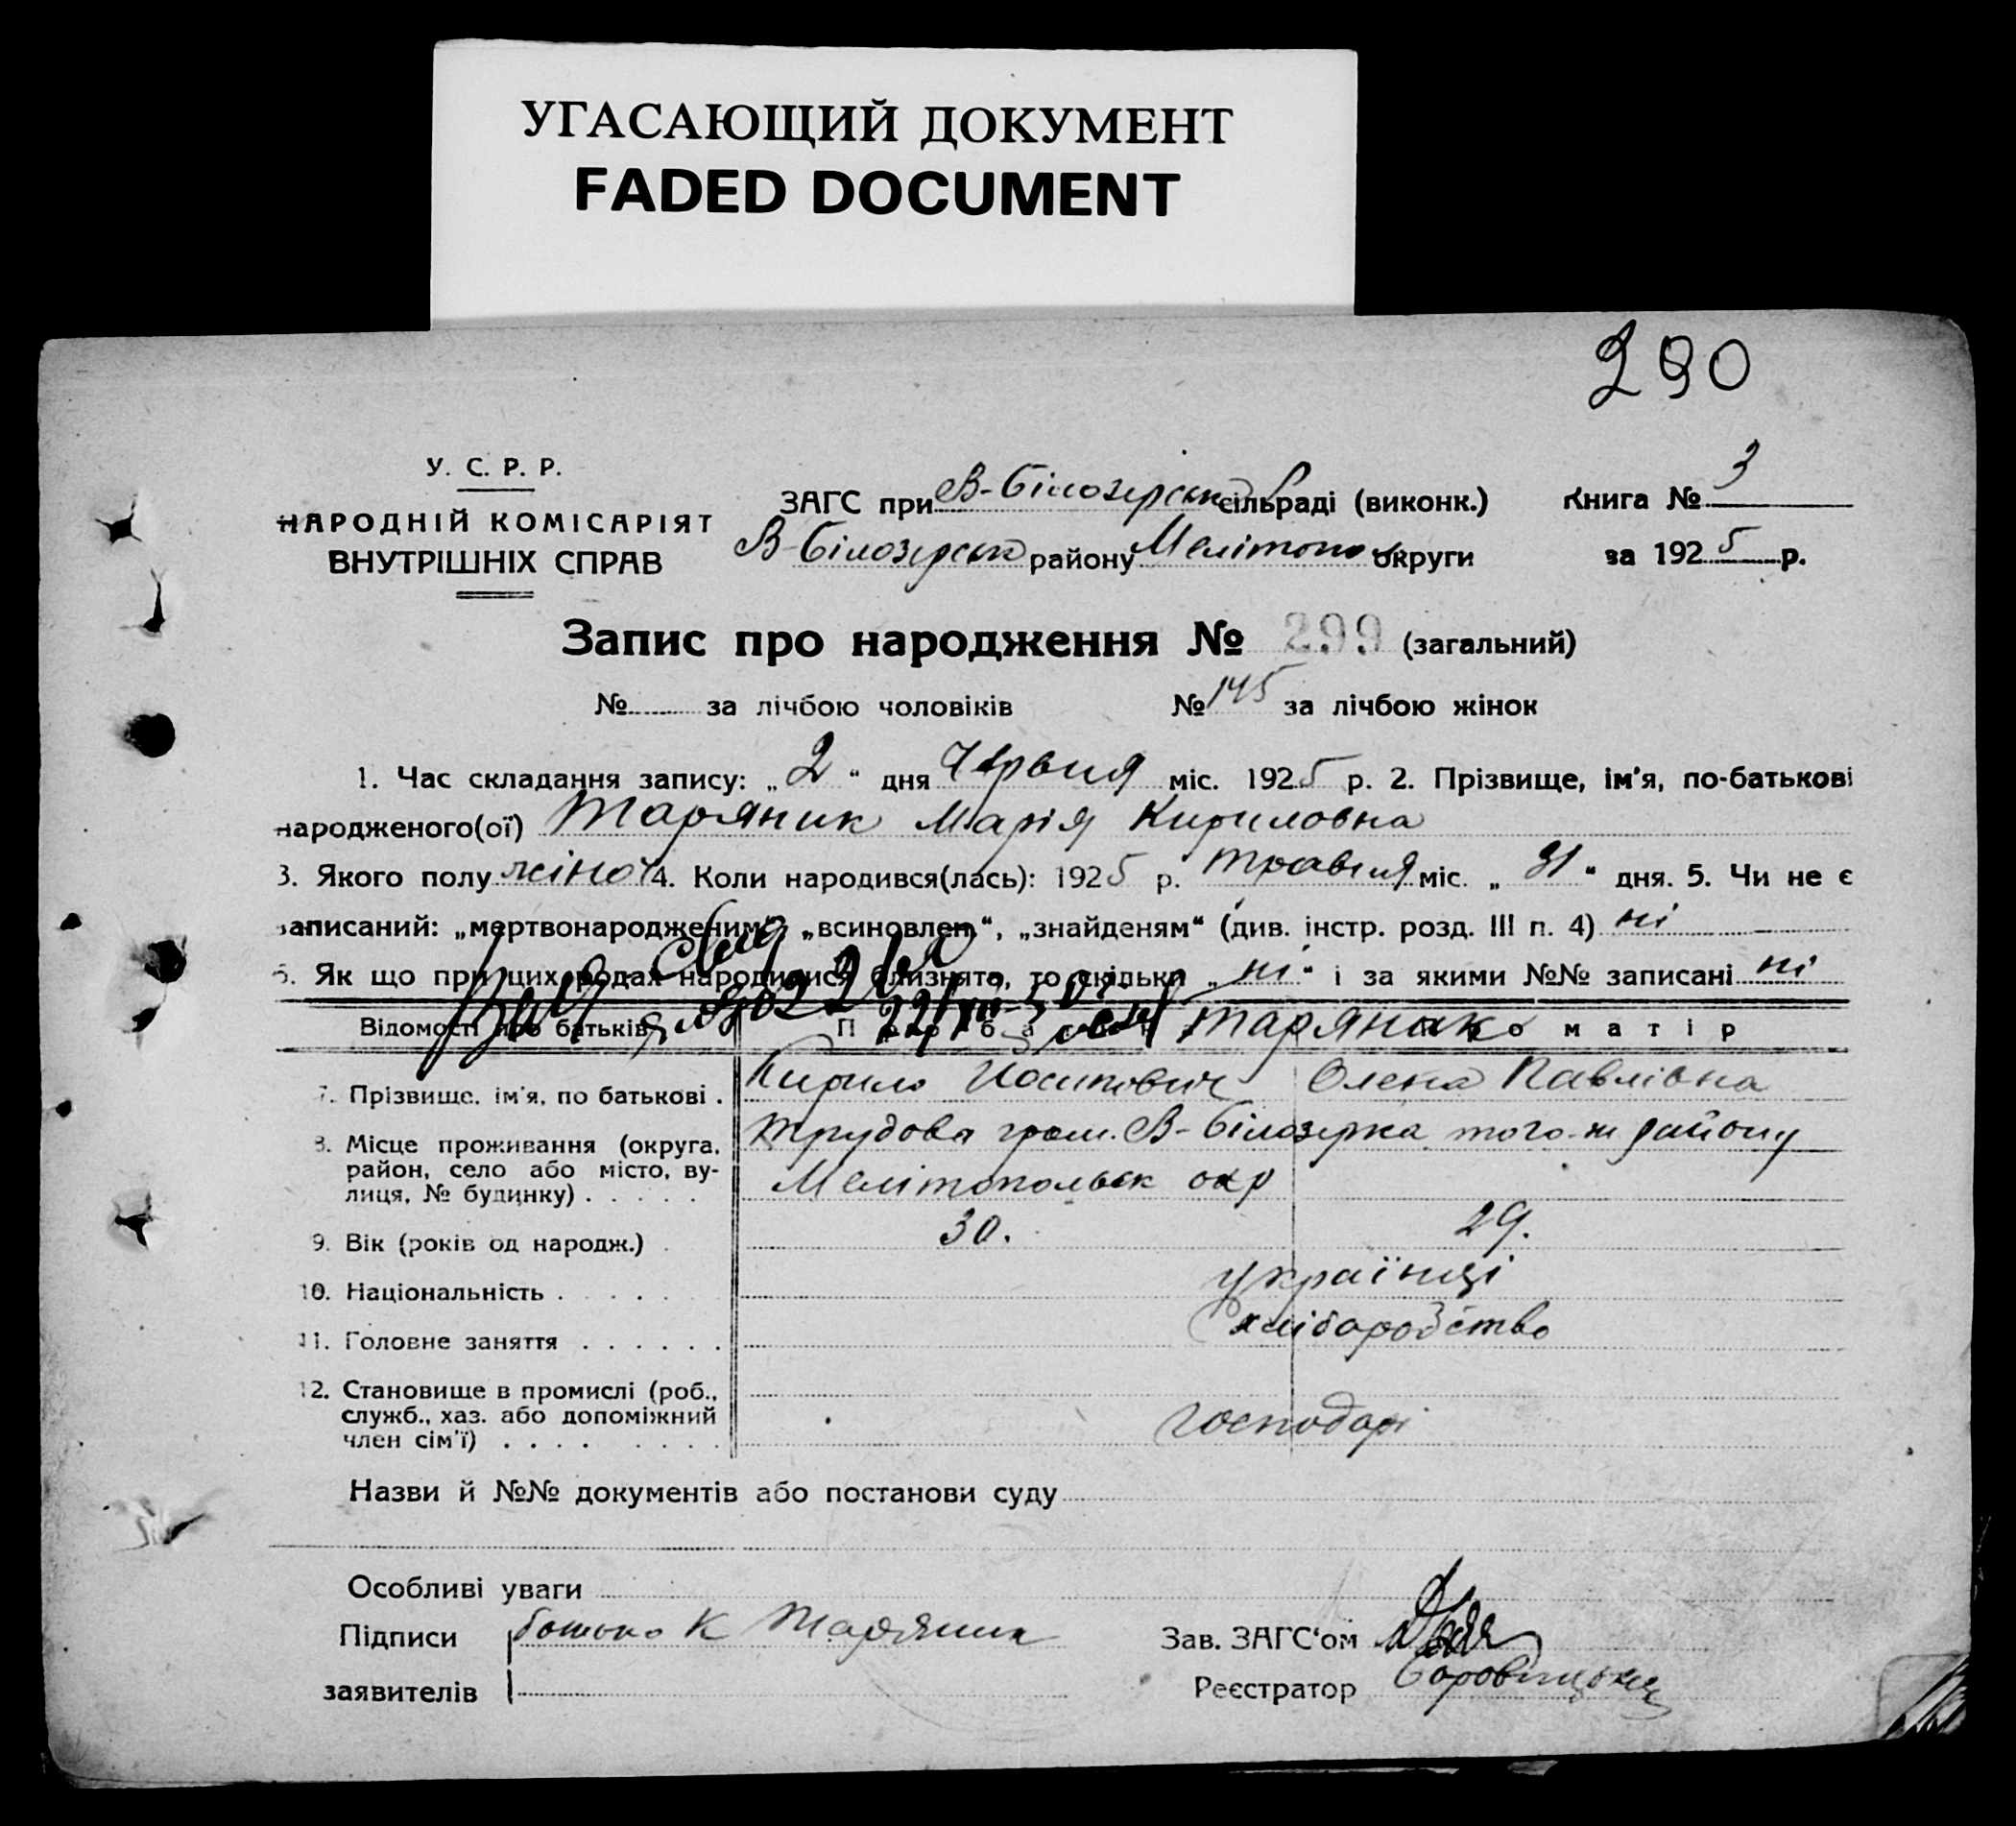 УГАСАЮЩИЙ ДОКУМЕНТ
FADED DOCUMENT
290
У. С. Р. Р.
НАРОДНІЙ КОМІСАРІЯТ
ВНУТРІШНІХ СПРАВ
ЗАГС при В-Білозерськ сільраді (виконк.)
В-Білозерськ району Мелітопол округи
Книга № 3
за 1925 р.
Запис про народження № 299 (загальний)
№ за лічбою чоловіків № 145 за лічбою жінок
1. Час складання запису: „2“ дня Червня міс. 1925 р. 2. Прізвище, ім'я, по-батькові
народженого(ої) Таряник Марія Кириловна
3. Якого полу жіноч 4. Коли народився(лась): 1925 р. травня міс. „31“ дня. 5. Чи не є
записаний: „мертвонародженим“, „всиновлен“, „знайденям“ (див. інстр. розд. III п. 4) ні
6. Як що при цих родах народилися близнята, то скільки „ні“ і за якими №№ записані ні
Відомості про батьків Про батька Про матір
Таряник
7. Прізвище, ім'я, по батькові . Кирило Йосипович Олена Павлівна
8. Місце проживання (округа, трудова гром. В-Білозерка того-ж району
район, село або місто, ву- Мелітопольськ окр
лиця, № будинку) . . . . .
9. Вік (років од народж.) . 30. 29.
10. Національність . . . . . українці
11. Головне заняття . . . . . . хліборобство
12. Становище в промислі (роб.,
служб., хаз. або допоміжний господарі
член сім'ї) . . . . . . . .
Назви й №№ документів або постанови суду
Особливі уваги
Підписи батько К Таряник
заявителів
Зав. ЗАГС‘ом
Реєстратор